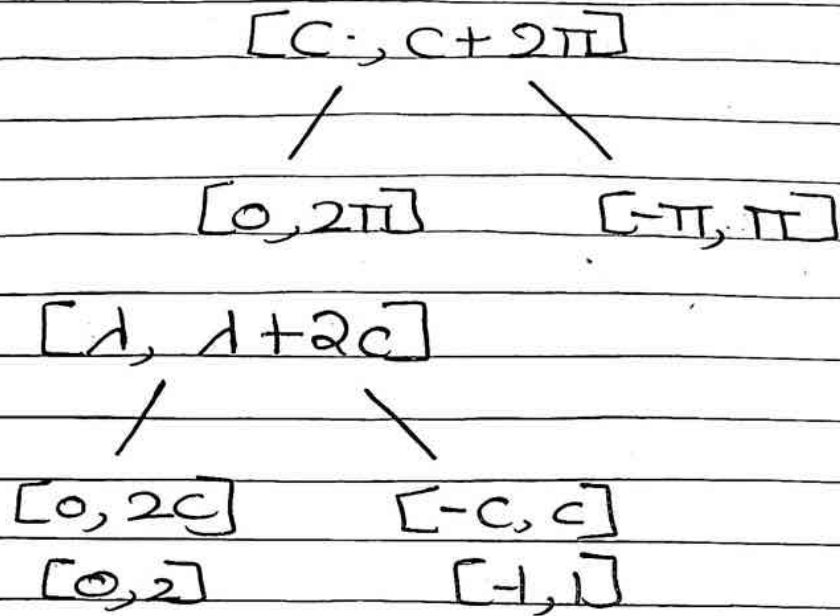 [C, C+2π]
[0, 2π] [-π, π]
[λ, λ+2c]
[0, 2c] [-c, c]
[0, 2] [-1, 1]